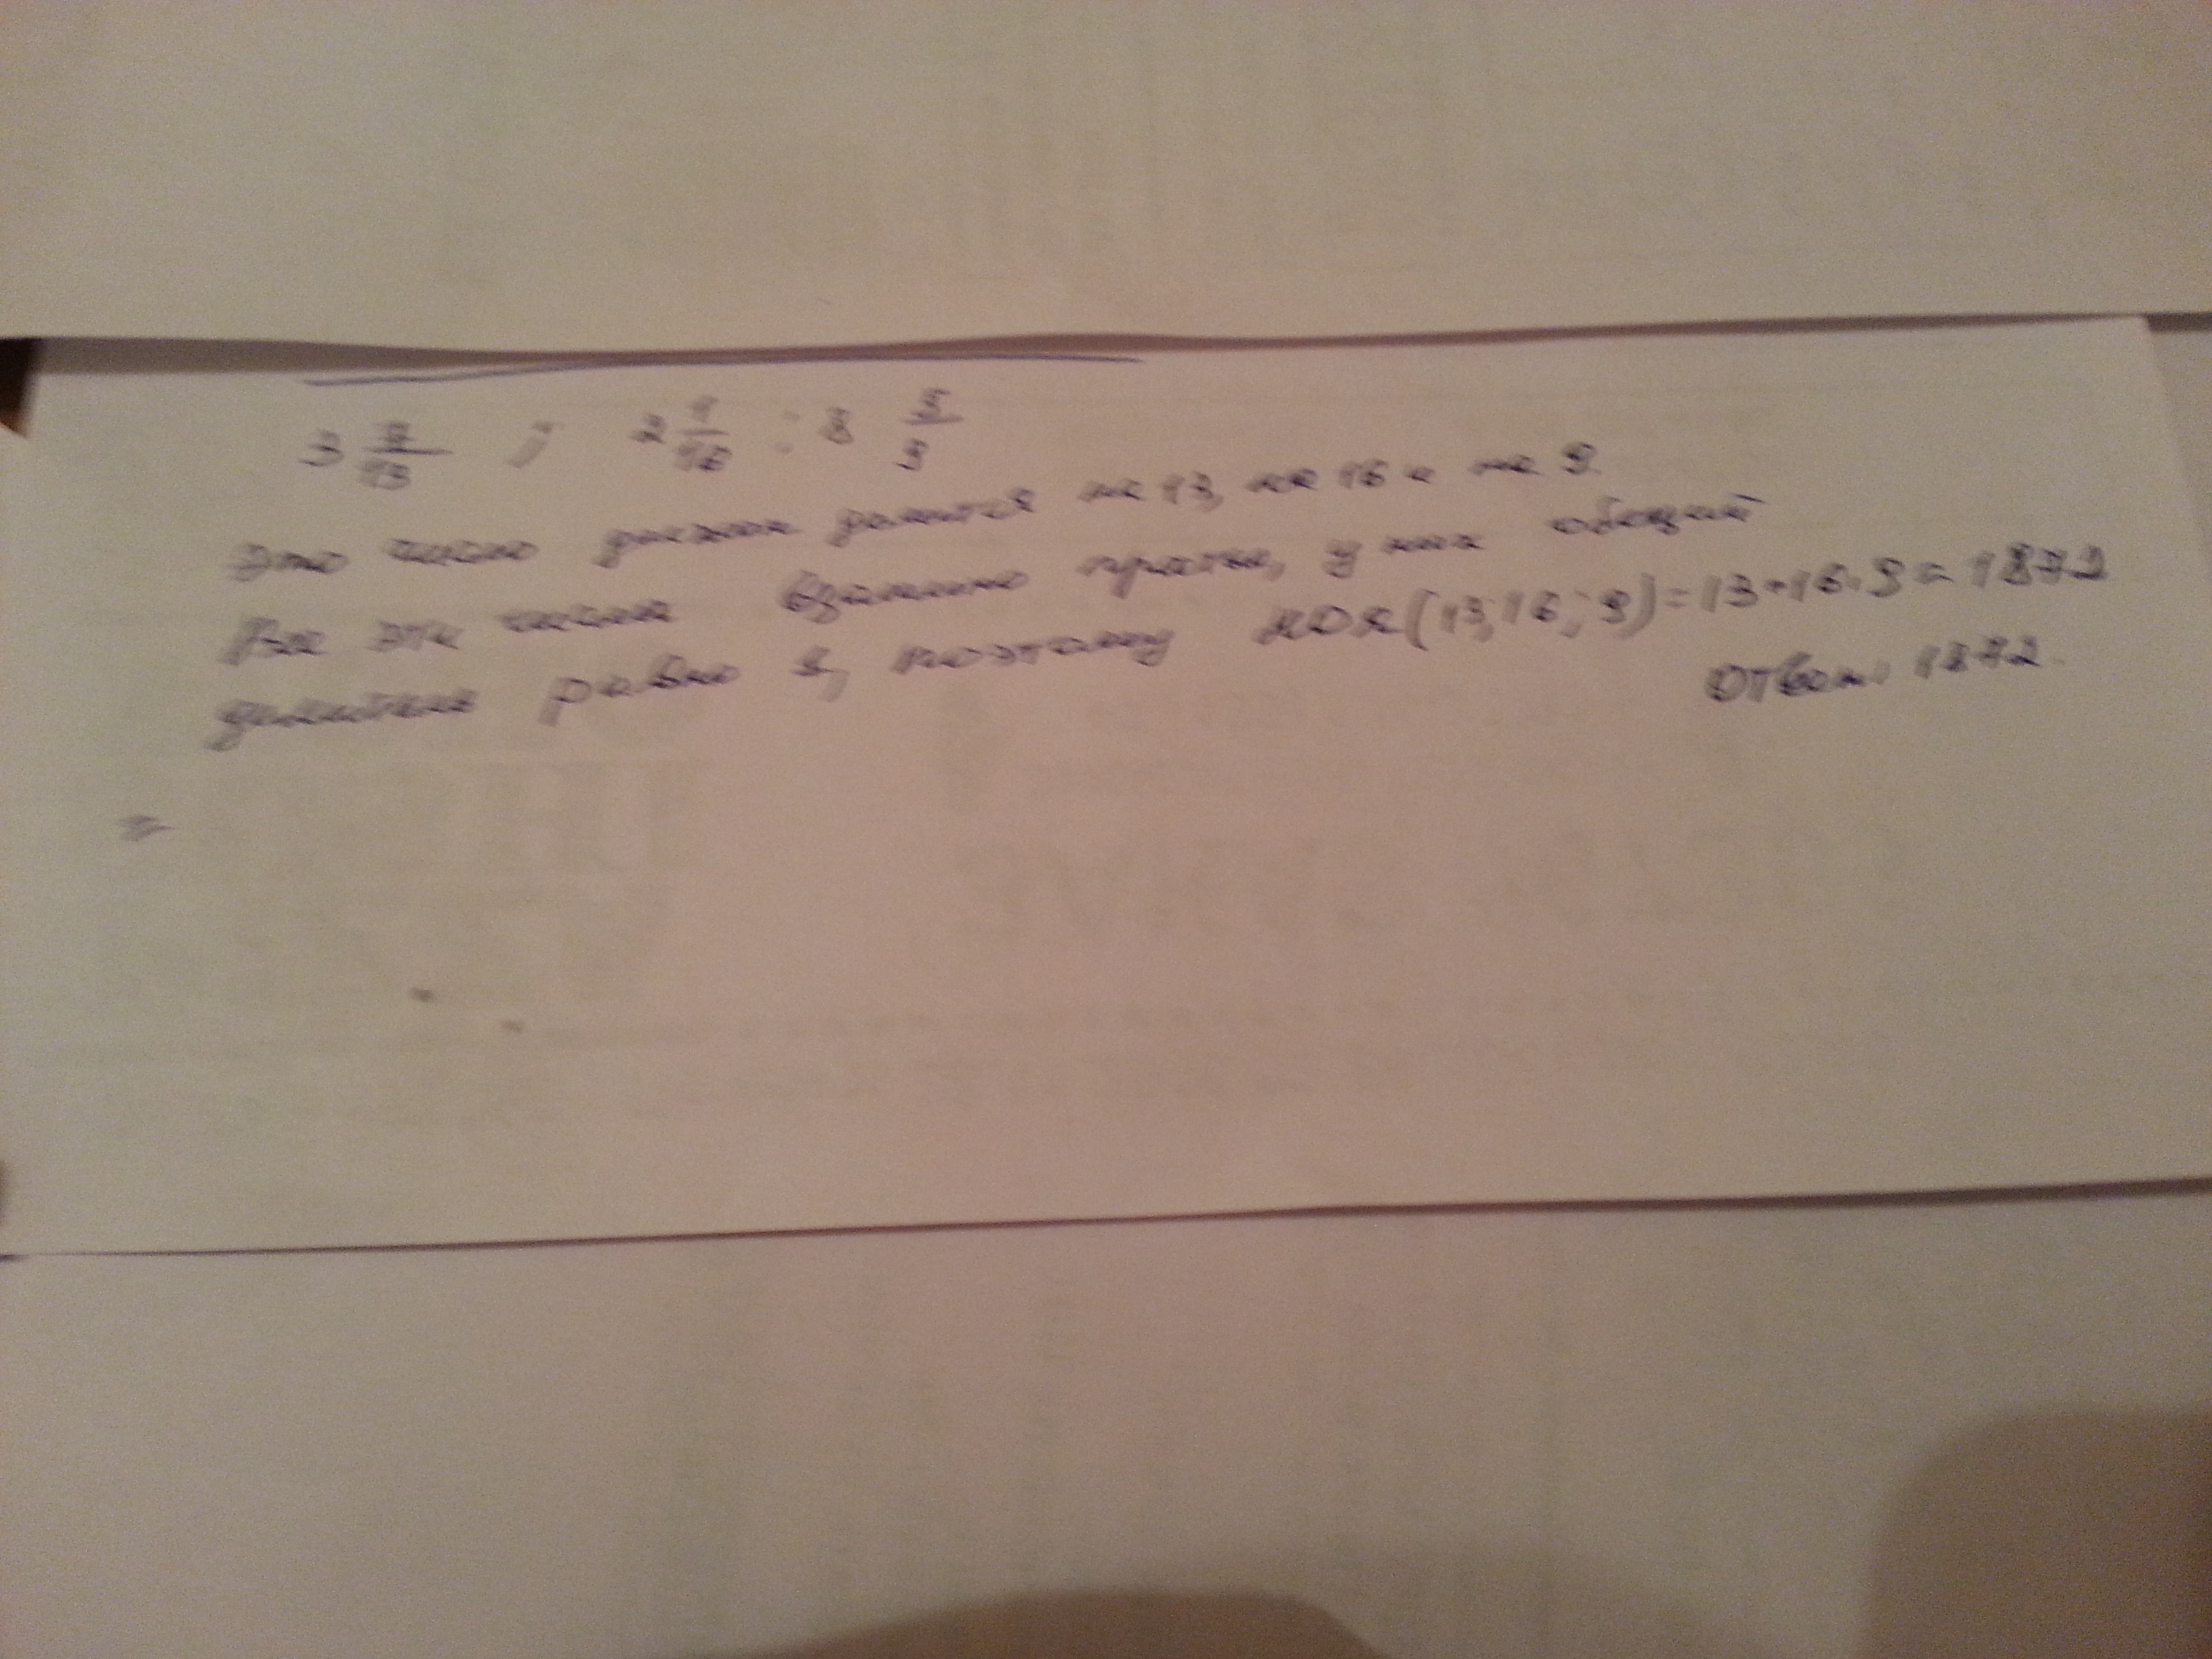 3 7/13 ; 2 1/16 ; 8 5/9
Это число должно делится на 13, на 16 и на 9.
Все эти числа взаимно просты, у них общий
делитель равно 1, поэтому НОК(13; 16; 9) = 13·16·9 = 1872
Ответ: 1872.